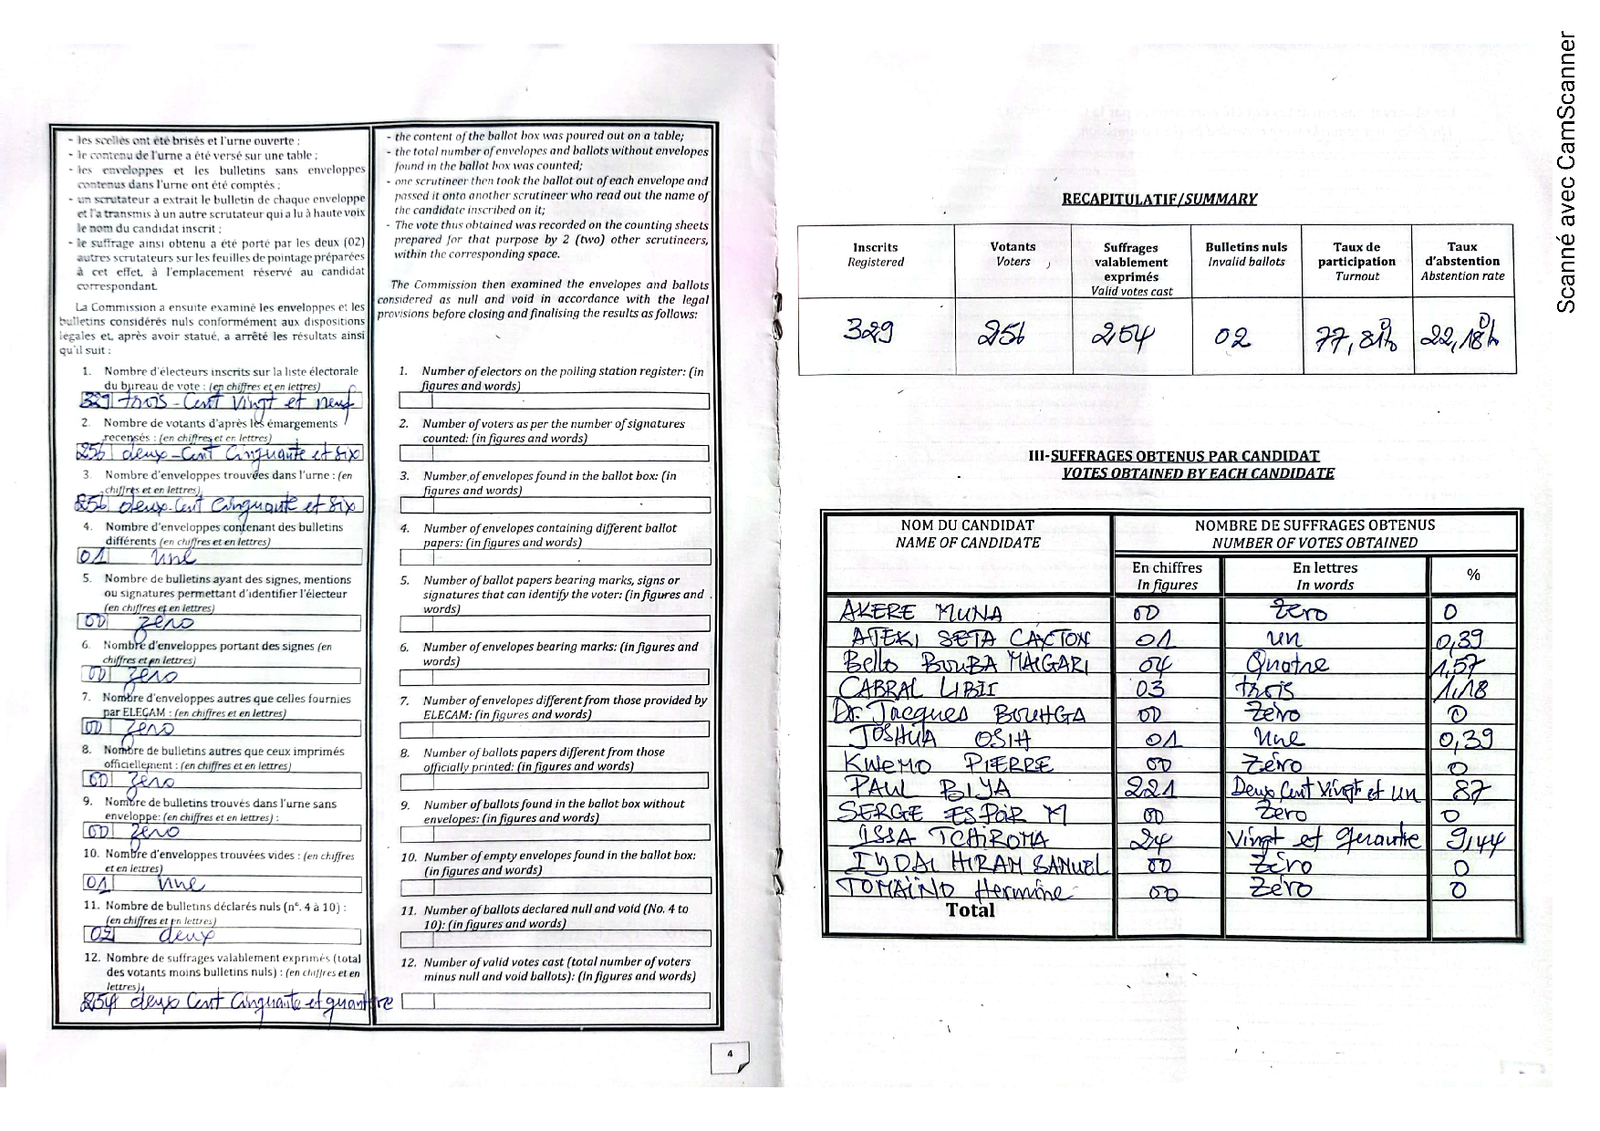 - les scellés ont été brisés et l'urne ouverte ;
- le contenu de l'urne a été versé sur une table ;
- les enveloppes et les bulletins sans enveloppes
contenus dans l'urne ont été comptés ;
- un scrutateur a extrait le bulletin de chaque enveloppe
et l'a transmis à un autre scrutateur qui a lu à haute voix
le nom du candidat inscrit ;
- le suffrage ainsi obtenu a été porté par les deux (02)
autres scrutateurs sur les feuilles de pointage préparées
à cet effet, à l'emplacement réservé au candidat
correspondant.
La Commission a ensuite examiné les enveloppes et les
bulletins considérés nuls conformément aux dispositions
légales et, après avoir statué, a arrêté les résultats ainsi
qu'il suit :
1. Nombre d'électeurs inscrits sur la liste électorale
du bureau de vote : (en chiffres et en lettres)
329 trois-Cent Vingt et neuf
2. Nombre de votants d'après les émargements
recensés : (en chiffres et en lettres)
256 deux-Cent Cinquante et six
3. Nombre d'enveloppes trouvées dans l'urne : (en
chiffres et en lettres)
256 deux-Cent Cinquante et six
4. Nombre d'enveloppes contenant des bulletins
différents (en chiffres et en lettres)
01 une
5. Nombre de bulletins ayant des signes, mentions
ou signatures permettant d'identifier l'électeur
(en chiffres et en lettres)
00 zéro
6. Nombre d'enveloppes portant des signes (en
chiffres et en lettres)
00 zéro
7. Nombre d'enveloppes autres que celles fournies
par ELECAM : (en chiffres et en lettres)
00 zéro
8. Nombre de bulletins autres que ceux imprimés
officiellement : (en chiffres et en lettres)
00 zéro
9. Nombre de bulletins trouvés dans l'urne sans
enveloppe: (en chiffres et en lettres) :
00 zéro
10. Nombre d'enveloppes trouvées vides : (en chiffres
et en lettres)
01 une
11. Nombre de bulletins déclarés nuls (n°. 4 à 10) :
(en chiffres et en lettres)
02 deux
12. Nombre de suffrages valablement exprimés (total
des votants moins bulletins nuls) : (en chiffres et en
lettres)
254 deux Cent Cinquante et quantre
- the content of the ballot box was poured out on a table;
- the total number of envelopes and ballots without envelopes
found in the ballot box was counted;
- one scrutineer then took the ballot out of each envelope and
passed it onto another scrutineer who read out the name of
the candidate inscribed on it;
- The vote thus obtained was recorded on the counting sheets
prepared for that purpose by 2 (two) other scrutineers,
within the corresponding space.
The Commission then examined the envelopes and ballots
considered as null and void in accordance with the legal
provisions before closing and finalising the results as follows:
1. Number of electors on the polling station register: (in
figures and words)
2. Number of voters as per the number of signatures
counted: (in figures and words)
3. Number of envelopes found in the ballot box: (in
figures and words)
4. Number of envelopes containing different ballot
papers: (in figures and words)
5. Number of ballot papers bearing marks, signs or
signatures that can identify the voter: (in figures and
words)
6. Number of envelopes bearing marks: (in figures and
words)
7. Number of envelopes different from those provided by
ELECAM: (in figures and words)
8. Number of ballots papers different from those
officially printed: (in figures and words)
9. Number of ballots found in the ballot box without
envelopes: (in figures and words)
10. Number of empty envelopes found in the ballot box:
(in figures and words)
11. Number of ballots declared null and void (No. 4 to
10): (in figures and words)
12. Number of valid votes cast (total number of voters
minus null and void ballots): (in figures and words)
4
RECAPITULATIF/SUMMARY
Inscrits Votants Suffrages Bulletins nuls Taux de Taux
Registered Voters valablement Invalid ballots participation d'abstention
exprimés Turnout Abstention rate
Valid votes cast
329 256 254 02 77,81% 22,18%
III-SUFFRAGES OBTENUS PAR CANDIDAT
VOTES OBTAINED BY EACH CANDIDATE
NOM DU CANDIDAT NOMBRE DE SUFFRAGES OBTENUS
NAME OF CANDIDATE NUMBER OF VOTES OBTAINED
En chiffres En lettres %
In figures In words
AKERE MUNA 00 Zéro 0
ATEKI SETA CAXTON 01 un 0,39
Bello BOUBA MAIGARI 04 Quatre 1,57
CABRAL LIBII 03 trois 1,18
Dr. Jacques BOUHGA 00 Zéro 0
JOSHUA OSIH 01 une 0,39
KWEMO PIERRE 00 Zéro 0
PAUL BIYA 221 Deux Cent Vingt et un 87
SERGE ESPOIR M 00 Zéro 0
ISSA TCHIROMA 24 Vingt et quautre 9,44
IYODI HIRAM SAMUEL 00 Zéro 0
TOMAÏNO Hermine 00 Zéro 0
Total
Scanné avec CamScanner